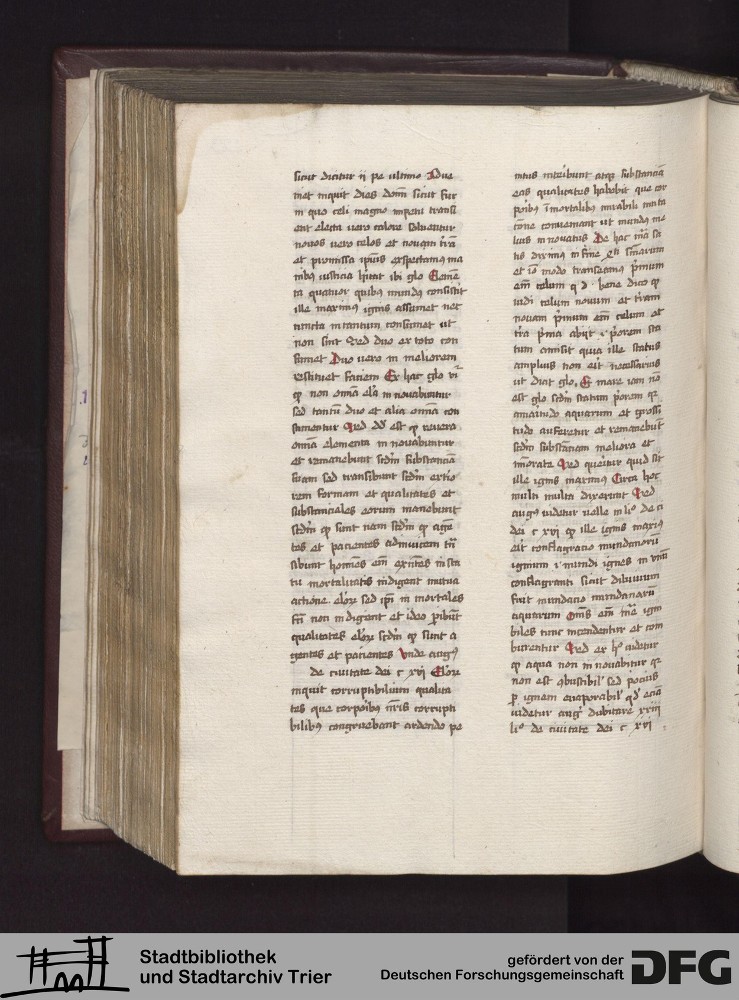 sicut dicitur ii pe ultimo Adue
niet inquit dies domī sicut fur
in quo celi magno impetu transi
ent electa uero calore soluentur
nouos uero celos et nouam t̄rā
et promissa ipius exspectamꝰ ma
in quibꝰ iusticia hītat ibi glo Elemē
ta quatuor quibꝰ mundꝰ consistit
ille maximꝰ ignis assumet nec
cuncta in tantum consumet ut
non sint Sed duo ex toto con
sumet Duo uero in meliorem
restituet faciem Ex hac glo vr̄
ꝙ non omnia elā in nouabuntur
sed tantū duo et alia omnia con
sumentur Sed dd̄ est ꝙ reuera
omnia elementa in nouabuntur
et remanebunt scdm substanciā
suam sed transibunt scdm exteio
rem formam et qualitates et
substanciales eorum manebunt
scdm ꝙ sunt nam scdm ꝙ agē
tes et pacientes adinuicem trā
sibunt homines em̄ exn̄tes in sta
tu mortalitatis indigent mutua
actione elorꝝ sed ip̄i in mortales
fc̄i non indigent et ideo ꝑibūt
qualitates elorꝝ scdm ꝙ sunt a
gentes et pacientes Vnde augꝰ
de ciuitate dei c xvi Elorꝝ
inquit corruptibilium qualita
tes que corporibꝰ nr̄is corrupti
bilibꝰ congruebant ardendo pe
nitus interibunt atqꝫ substanciā
eas qualitates habebit que cor
poribꝰ īmortalibꝰ mirabili muta
cōne conueniant ut mundꝰ me
lius in nouatus De hac mā sa
tis diximꝰ in fine
et iō modo transeamꝰ pͥmum
em̄ celum q d bene dico ꝙ
uidi celum nouum et t̄ram
nouam pͥmum em̄ celum et
t̄ra pͥma abijt i pͥorem sta
tum amisit quia ille status
amplius non est necessarius
ut dicit glo Et mare iam nō
est glo scdm statum pͥorem qꝛ
amaritudo aquarum et grossi
tudo auferetur et remanebit
scdm substanciam meliora et
Sed queritur quid sit
ille ignis maximꝰ Circa hoc
multi multa dixerunt Sed
augꝰ uidetur uelle in liº de ci
dei c xvi ꝙ ille ignis maxīꝰ
erit conflagracio mundanorū
ignium i mundi ignes in vnū
conflagranti sicut diluuium
fuit inundacio mundanarū
aquarum Om̄s em̄ ignī
biles tunc incendentur et com
burentur Sed ex hº uidetur
ꝙ aqua non in nouabitur qꝛ
non est ɔbustibilˀ sed pocius
ꝑ ignem euaporabilˀ qd̓ eciā
uidetur augˀ dubitare xxiii
liº de ciuitate dei c xvi
Stadtbibliothek
und Stadtarchiv Trier
gefördert von der
Deutschen Forschungsgemeinschaft
DFG